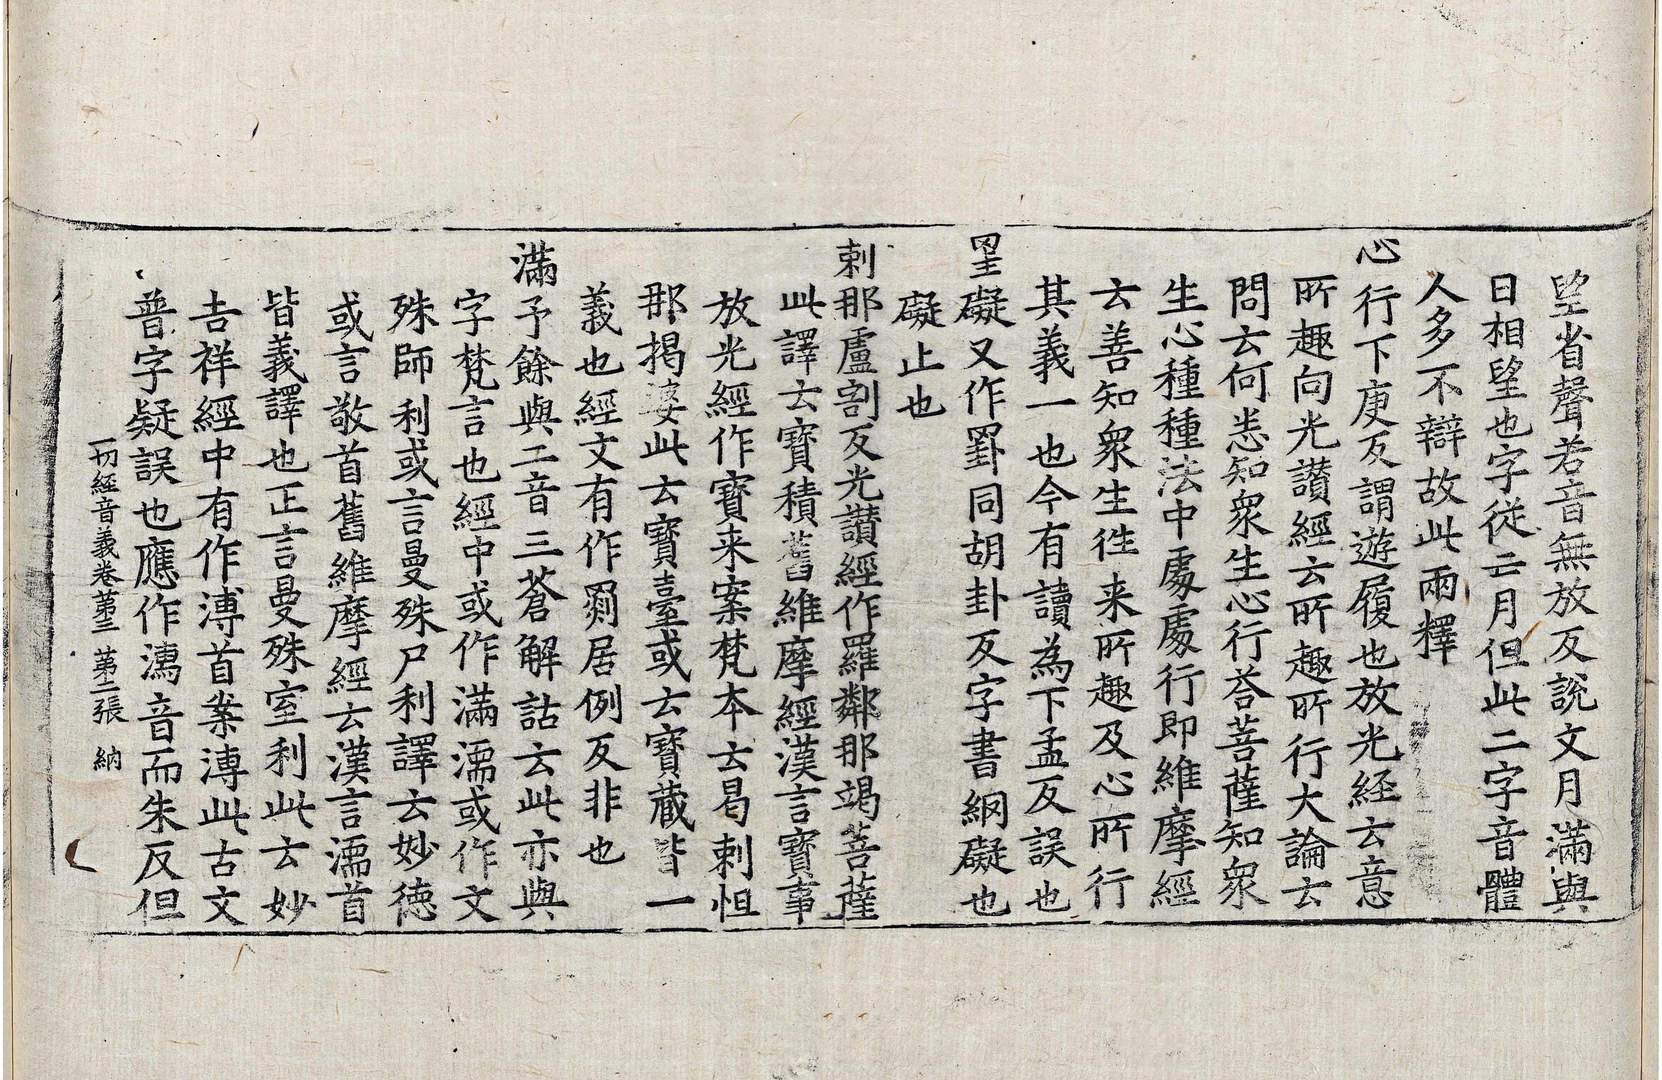 朢省聲若音無放反說文月滿與
日相朢也字從𦣠月但此二字音體
人多不辯故此兩釋
心行下庚反謂遊履也放光経云意
所趣向光讃經云所趣所行大論云
問云何悉知衆生心行荅菩薩知衆
生心種種法中處處行即維摩經
云善知衆生徃来所趣及心所行
其義一也今有讀為下孟反誤也
罣礙又作罫同胡卦反字書網礙也
礙止也
剌那盧割反光讃經作羅鄰那竭菩薩
此譯云寶積舊維摩經漢言寶事
放光經作寶来案梵本云曷剌怛
那揭婆此云寶臺或云寶藏皆一
義也經文有作罽居例反非也
滿予餘與二音三蒼解詁云此亦與
字梵言也經中或作滿濡或作文
殊師利或言曼殊尸利譯云妙徳
或言敬首舊維摩經云漢言濡首
皆義譯也正言曼殊室利此云妙
吉祥經中有作溥首案溥此古文
普字疑誤也應作濡音而朱反但
一切經音義卷第三 第二張 納